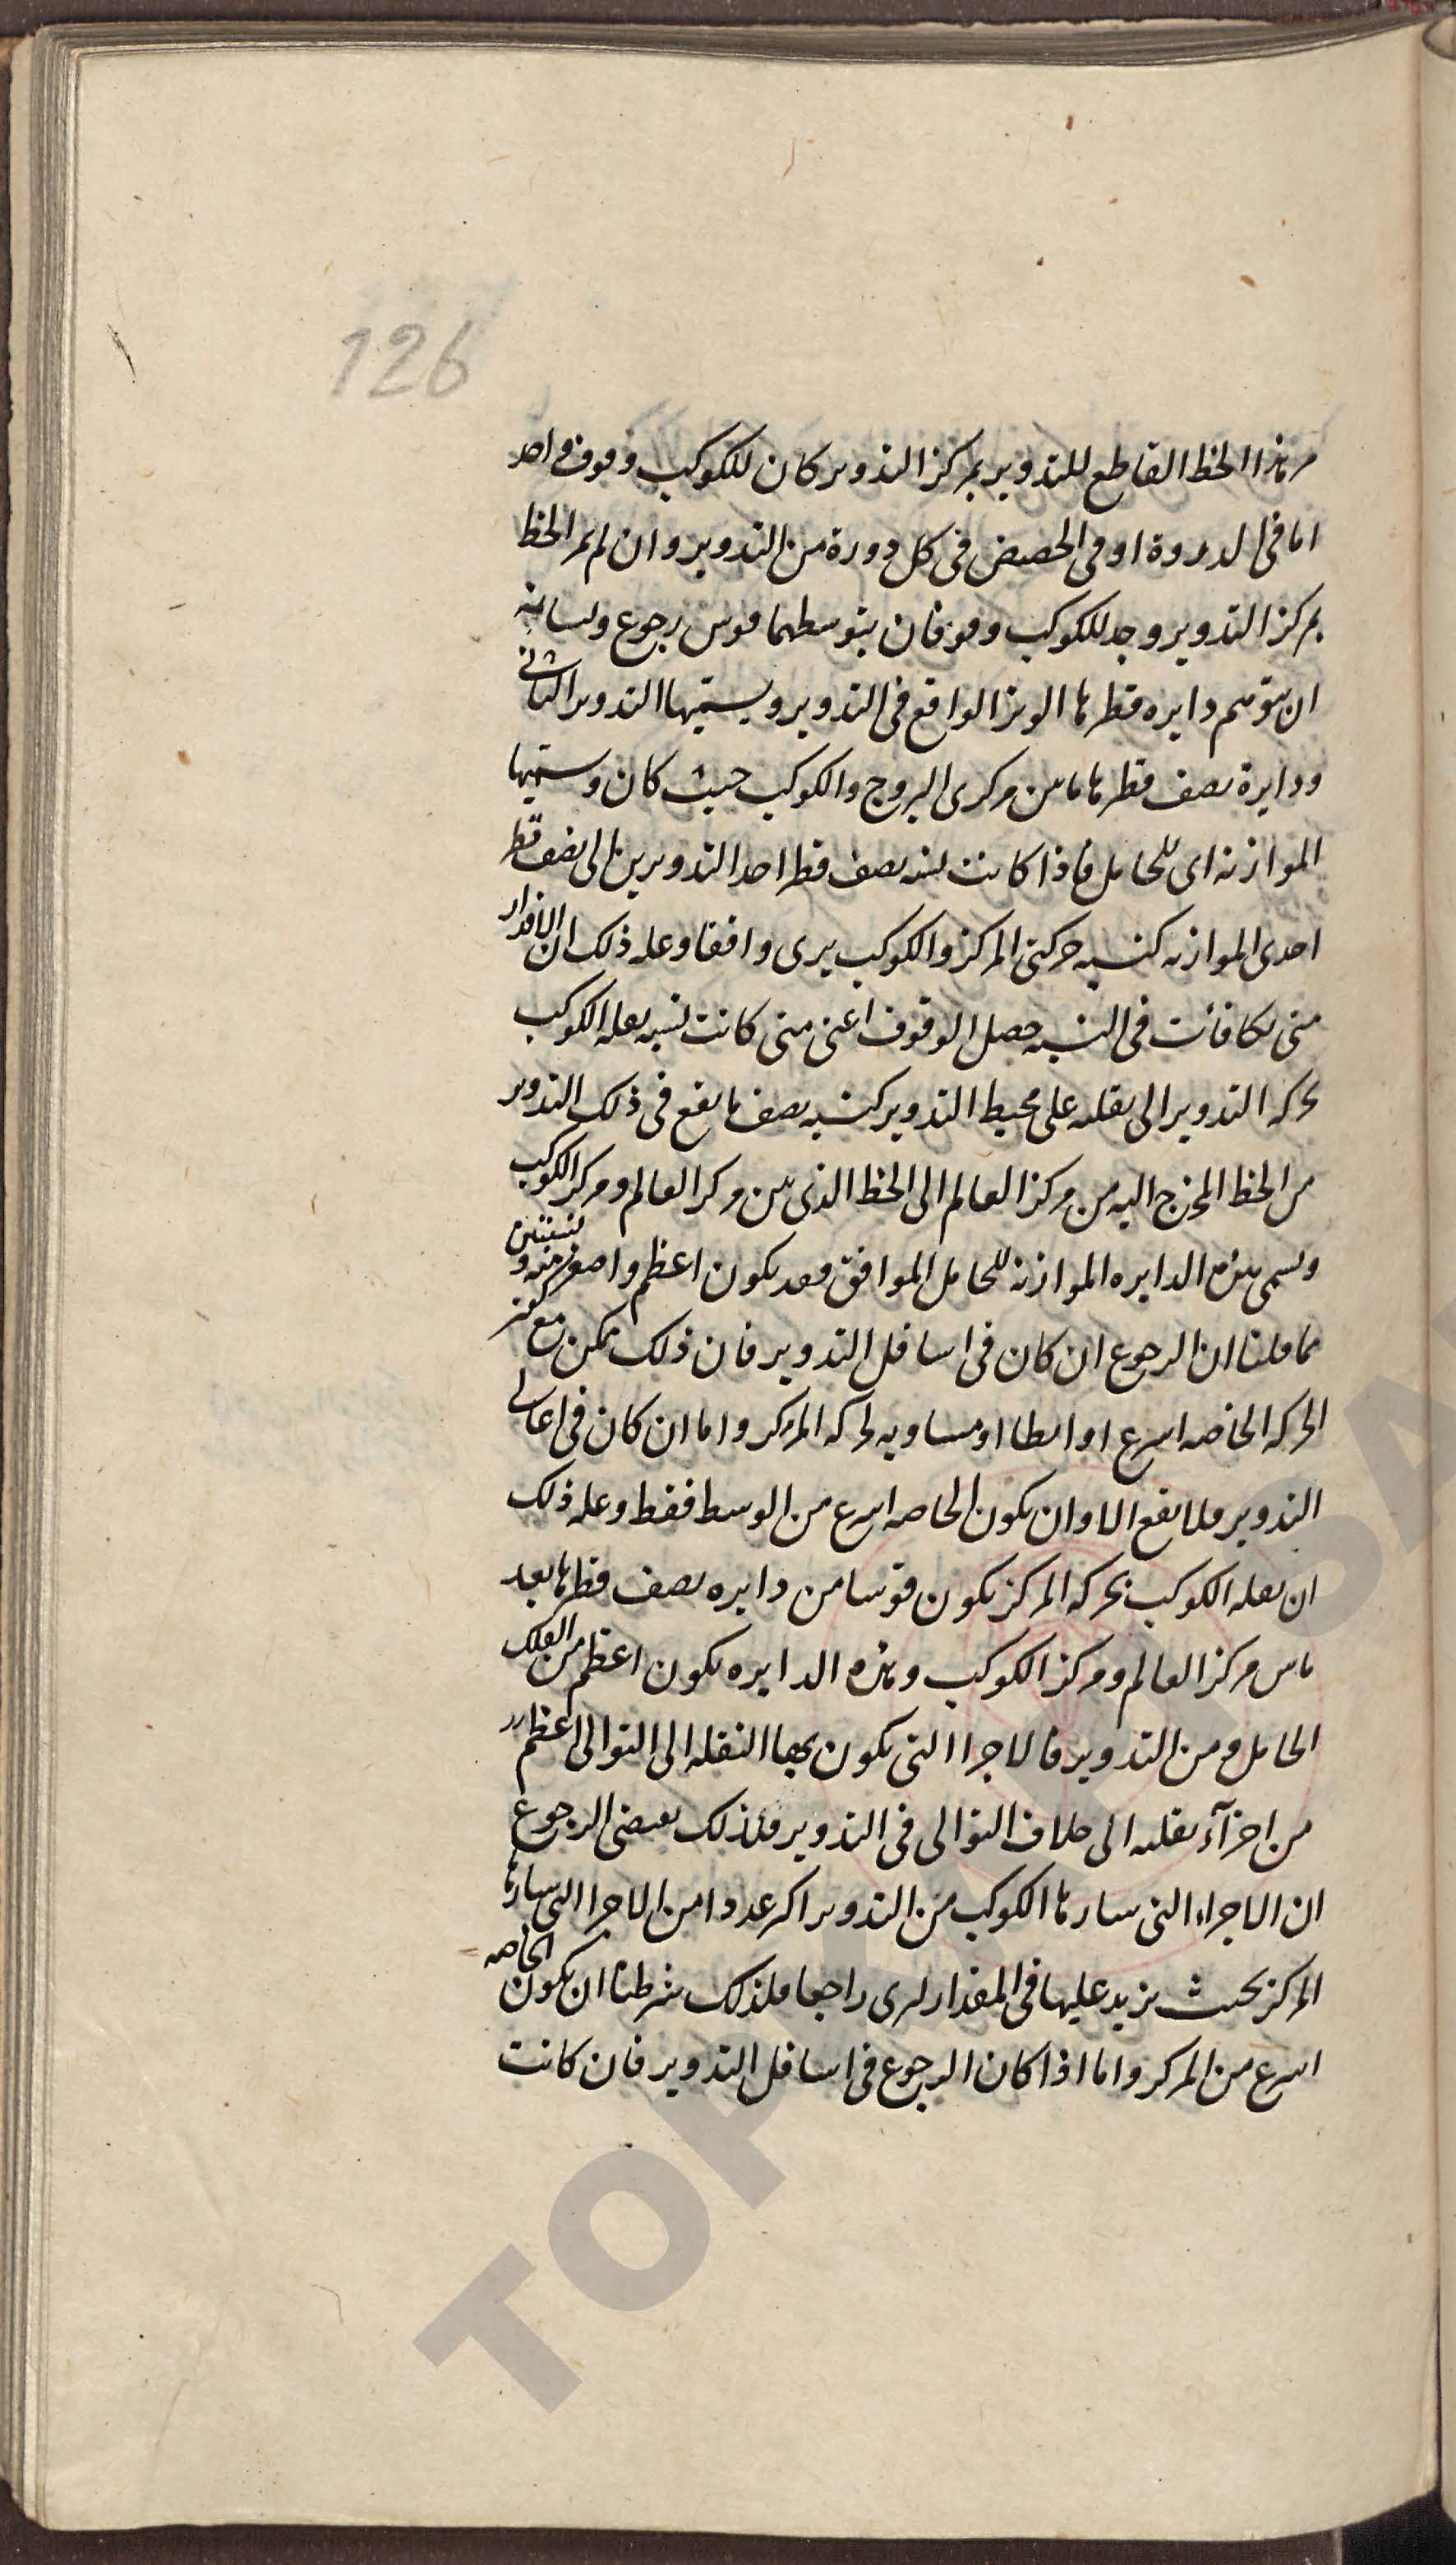 126
مر هذا الخط القاطع للتدوير بمركز التدوير كان للكوكب وقوف واحد
اما في الذروة او في الحضيض في كل دورة من التدوير وان لم يمر الخط
بمركز التدوير وجد للكوكب وقوفان يتوسطهما قوس رجوع
ان يتوهم دايره قطرها الوتر الواقع في التدوير ويسميها التدوير الثاني
ودايرة نصف قطرها ما بين مركزي البروج والكوكب حيث كان وسميها
الموازنه اى للحامل فاذا كانت نسبه نصف قطر احد التدويرين الى نصف قطر
احدى الموازنه كنسبه حركتي المركز والكوكب يرى واقفا وعله ذلك ان الاقدار
متى تكافأت في النسبه حصل الوقوف اعنى متى كانت نسبه نقله الكوكب
بحركه التدوير الى نقلته على محيط التدوير كنسبه نصف ما يقع في ذلك التدوير
من الخط المخرج اليه من مركز العالم الى الخط الذى بين مركز العالم ومركز الكوكب
وتسمى هذه الدايره الموازنه للحامل الموافق وقد يكون اعظم واصغر منه و
مما قلنا ان الرجوع ان كان في اسافل التدوير فان ذلك ممكن مع كون
الحركه الخاصه اسرع او ابطا او مساويه لحركه المركز واما ان كان في اعالى
التدوير فلا يقع الا وان يكون الخاصه اسرع من الوسط فقط وعله ذلك
ان نقله الكوكب بحركه المركز يكون قوسا من دايره نصف قطرها بعد
ما بين مركز العالم ومركز الكوكب وهذه الدايره يكون اعظم من الفلك
الحامل ومن التدوير فالاجزا التى يكون بها النقله الى التوالى اعظم
من اجزآء نقلته الى خلاف التوالى في التدوير فلذلك يقتضى الرجوع
ان الاجزاء التى سارها الكوكب من التدوير اكثر عددا من الاجزا التى سارها
المركز بحيث يزيد عليها في المقدار ليرى راجعا فلذلك شرطنا ان يكون الخاصه
اسرع من المركز واما اذا كان الرجوع في اسافل التدوير فان كانت